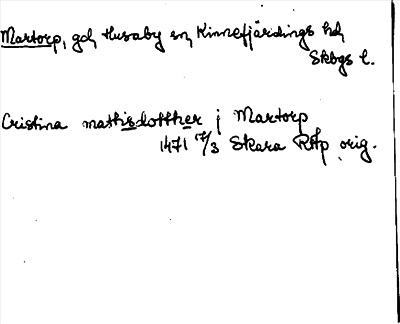 Martorp, gd, Husaby sn, Kinnefjärdings hd,
Skbgs l.
Cristina mathisdotther j Martorp
1471 17/3 Skara RAp orig.